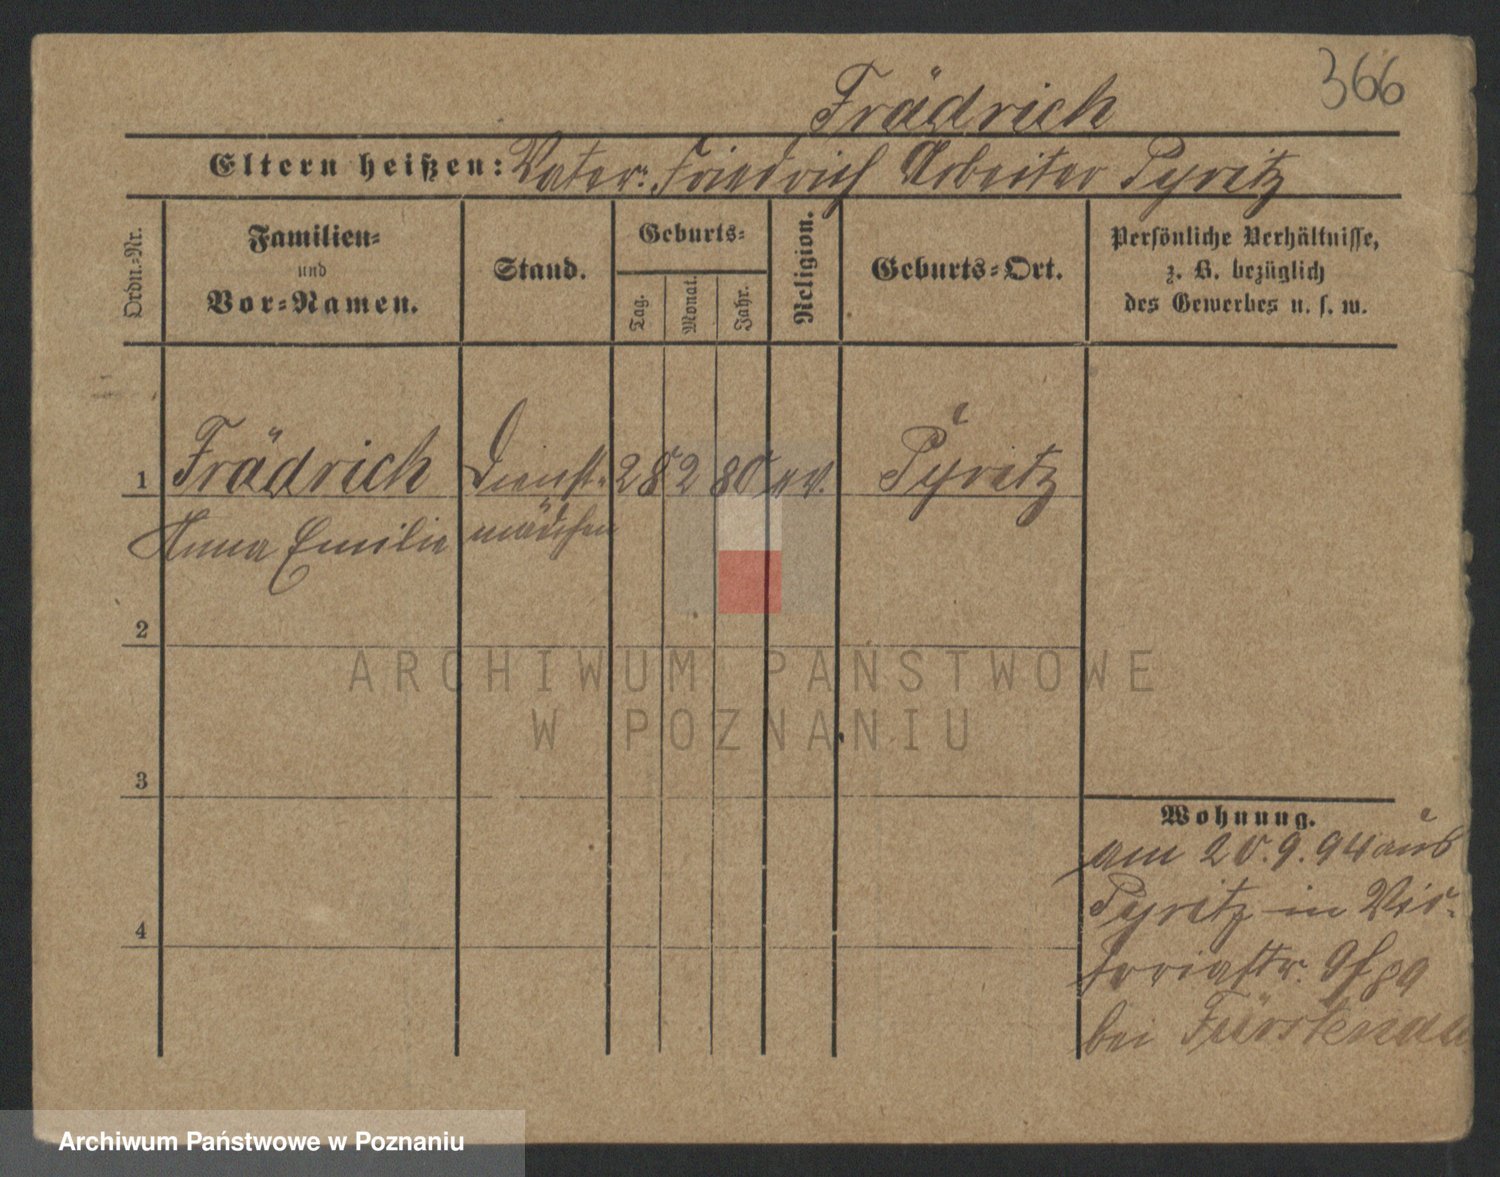 366
Frädrich
Eltern heißen: Vater: Friedrich Arbeiter Pyritz
Ordn.-Nr.
Familien-
und
Vor-Namen.
Stand.
Geburts-
Tag.
Monat.
Jahr.
Religion.
Geburts-Ort.
Persönliche Verhältnisse,
z. B. bezüglich
des Gewerbes u. s. w.
1 Frädrich Dienst- 28 2 80 ev. Pyritz
Anna Emilie mädchen
2
3
4
Wohnung.
am 20.9.94 aus
Pyritz in Vic-
toriastr.
bei Fürstenau
ARCHIWUM PAŃSTWOWE
W POZNANIU
Archiwum Państwowe w Poznaniu